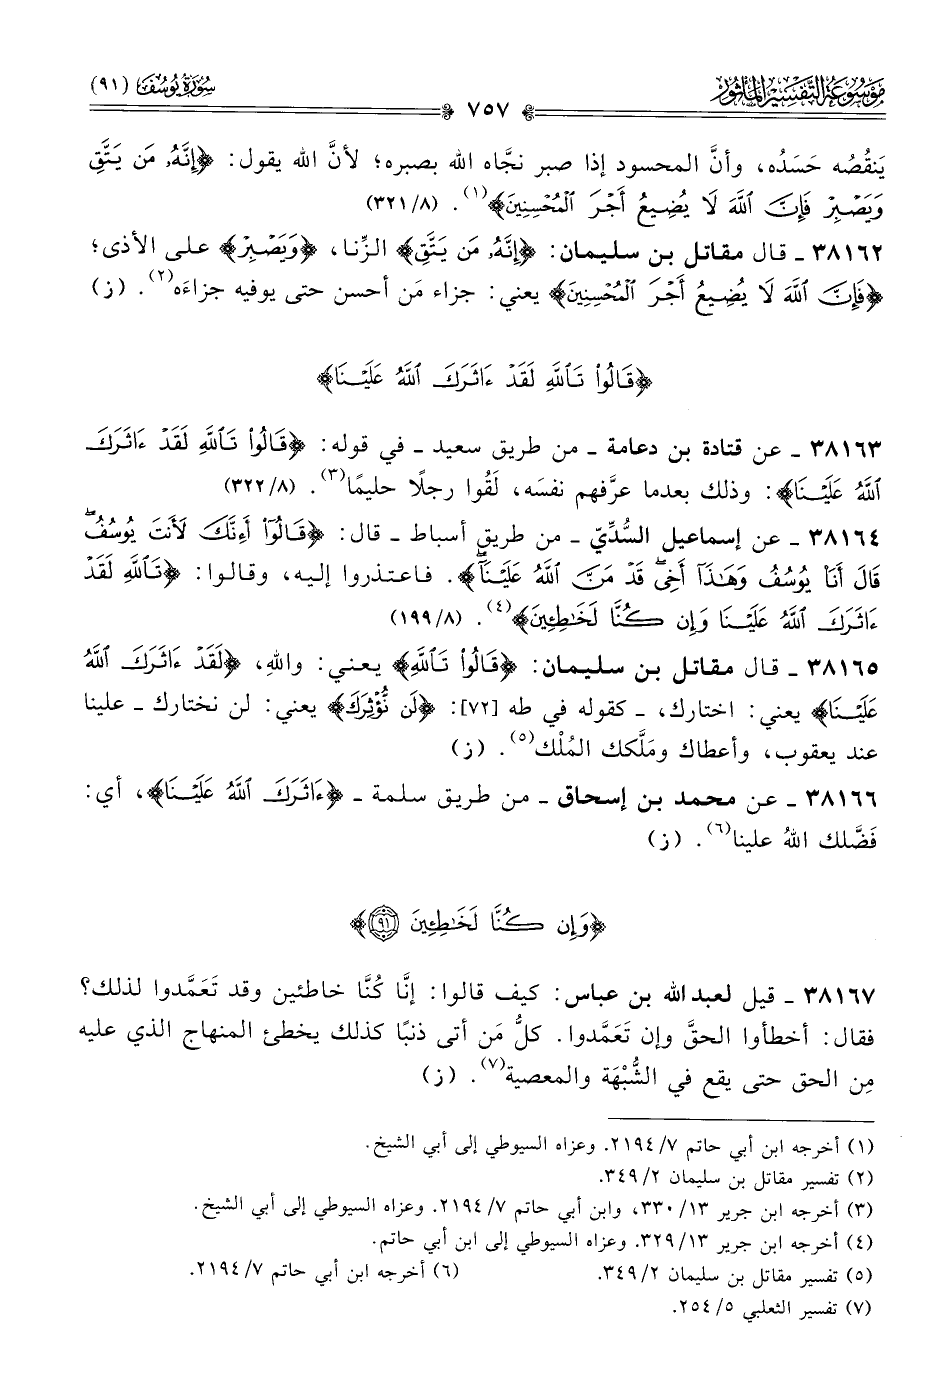 مَوْسُوعَة التَّفْسِير المَأْثُور
سُورَة يُوسُف (٩١)
٧٥٧
يَنقُصُه حَسَدُه، وأنَّ المحسود إذا صبر نجَّاه الله بصبره؛ لأنَّ الله يقول: ﴿إِنَّهُۥ مَن يَتَّقِ
وَيَصْبِرْ فَإِنَّ ٱللَّهَ لَا يُضِيعُ أَجْرَ ٱلْمُحْسِنِينَ﴾(١). (٨/ ٣٢١)
٣٨١٦٢ ـ قال مقاتل بن سليمان: ﴿إِنَّهُۥ مَن يَتَّقِ﴾ الزِّنا، ﴿وَيَصْبِرْ﴾ على الأذى؛
﴿فَإِنَّ ٱللَّهَ لَا يُضِيعُ أَجْرَ ٱلْمُحْسِنِينَ﴾ يعني: جزاء مَن أحسن حتى يوفيه جزاءَه(٢). (ز)
﴿قَالُوا۟ تَٱللَّهِ لَقَدْ ءَاثَرَكَ ٱللَّهُ عَلَيْنَا﴾
٣٨١٦٣ ـ عن قتادة بن دعامة ـ من طريق سعيد ـ في قوله: ﴿قَالُوا۟ تَٱللَّهِ لَقَدْ ءَاثَرَكَ
ٱللَّهُ عَلَيْنَا﴾: وذلك بعدما عرَّفهم نفسَه، لَقُوا رجلًا حليمًا(٣). (٨/ ٣٢٢)
٣٨١٦٤ ـ عن إسماعيل السُّدِّيّ ـ من طريق أسباط ـ قال: ﴿قَالُوٓا۟ أَءِنَّكَ لَأَنتَ يُوسُفُ ۖ
قَالَ أَنَا۠ يُوسُفُ وَهَـٰذَآ أَخِى ۖ قَدْ مَنَّ ٱللَّهُ عَلَيْنَآ ۖ﴾. فاعتذروا إليه، وقالوا: ﴿تَٱللَّهِ لَقَدْ
ءَاثَرَكَ ٱللَّهُ عَلَيْنَا وَإِن كُنَّا لَخَـٰطِـِٔينَ﴾(٤). (٨/ ١٩٩)
٣٨١٦٥ ـ قال مقاتل بن سليمان: ﴿قَالُوا۟ تَٱللَّهِ﴾ يعني: واللهِ، ﴿لَقَدْ ءَاثَرَكَ ٱللَّهُ
عَلَيْنَا﴾ يعني: اختارك، ـ كقوله في طه [٧٢]: ﴿لَن نُّؤْثِرَكَ﴾ يعني: لن نختارك ـ علينا
عند يعقوب، وأعطاك ومَلَّكك المُلْك(٥). (ز)
٣٨١٦٦ ـ عن محمد بن إسحاق ـ من طريق سلمة ـ ﴿ءَاثَرَكَ ٱللَّهُ عَلَيْنَا﴾، أي:
فَضَّلك اللهُ علينا(٦). (ز)
﴿وَإِن كُنَّا لَخَـٰطِـِٔينَ ٩١﴾
٣٨١٦٧ ـ قيل لعبد الله بن عباس: كيف قالوا: إنَّا كُنَّا خاطئين وقد تَعَمَّدوا لذلك؟
فقال: أخطأوا الحقَّ وإن تَعَمَّدوا. كلُّ مَن أتى ذنبًا كذلك يخطئ المنهاج الذي عليه
مِن الحق حتى يقع في الشُّبْهَة والمعصية(٧). (ز)
(١) أخرجه ابن أبي حاتم ٧/ ٢١٩٤. وعزاه السيوطي إلى أبي الشيخ.
(٢) تفسير مقاتل بن سليمان ٢/ ٣٤٩.
(٣) أخرجه ابن جرير ١٣/ ٣٣٠، وابن أبي حاتم ٧/ ٢١٩٤. وعزاه السيوطي إلى أبي الشيخ.
(٤) أخرجه ابن جرير ١٣/ ٣٢٩. وعزاه السيوطي إلى ابن أبي حاتم.
(٥) تفسير مقاتل بن سليمان ٢/ ٣٤٩. (٦) أخرجه ابن أبي حاتم ٧/ ٢١٩٤.
(٧) تفسير الثعلبي ٥/ ٢٥٤.